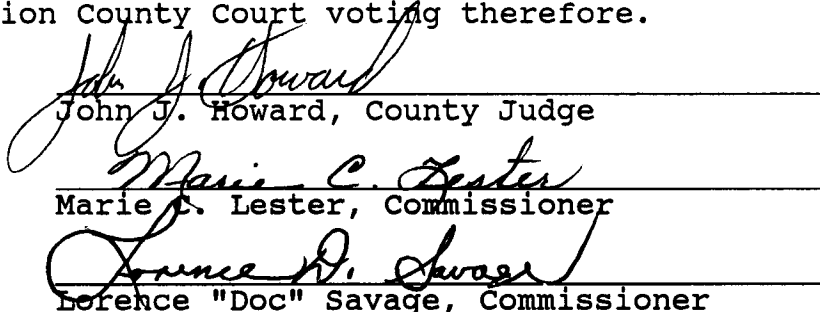 ion County Court voting therefore.
John J. Howard
John J. Howard, County Judge
Marie C. Lester
Marie C. Lester, Commissioner
Lorence D. Savage
Lorence "Doc" Savage, Commissioner